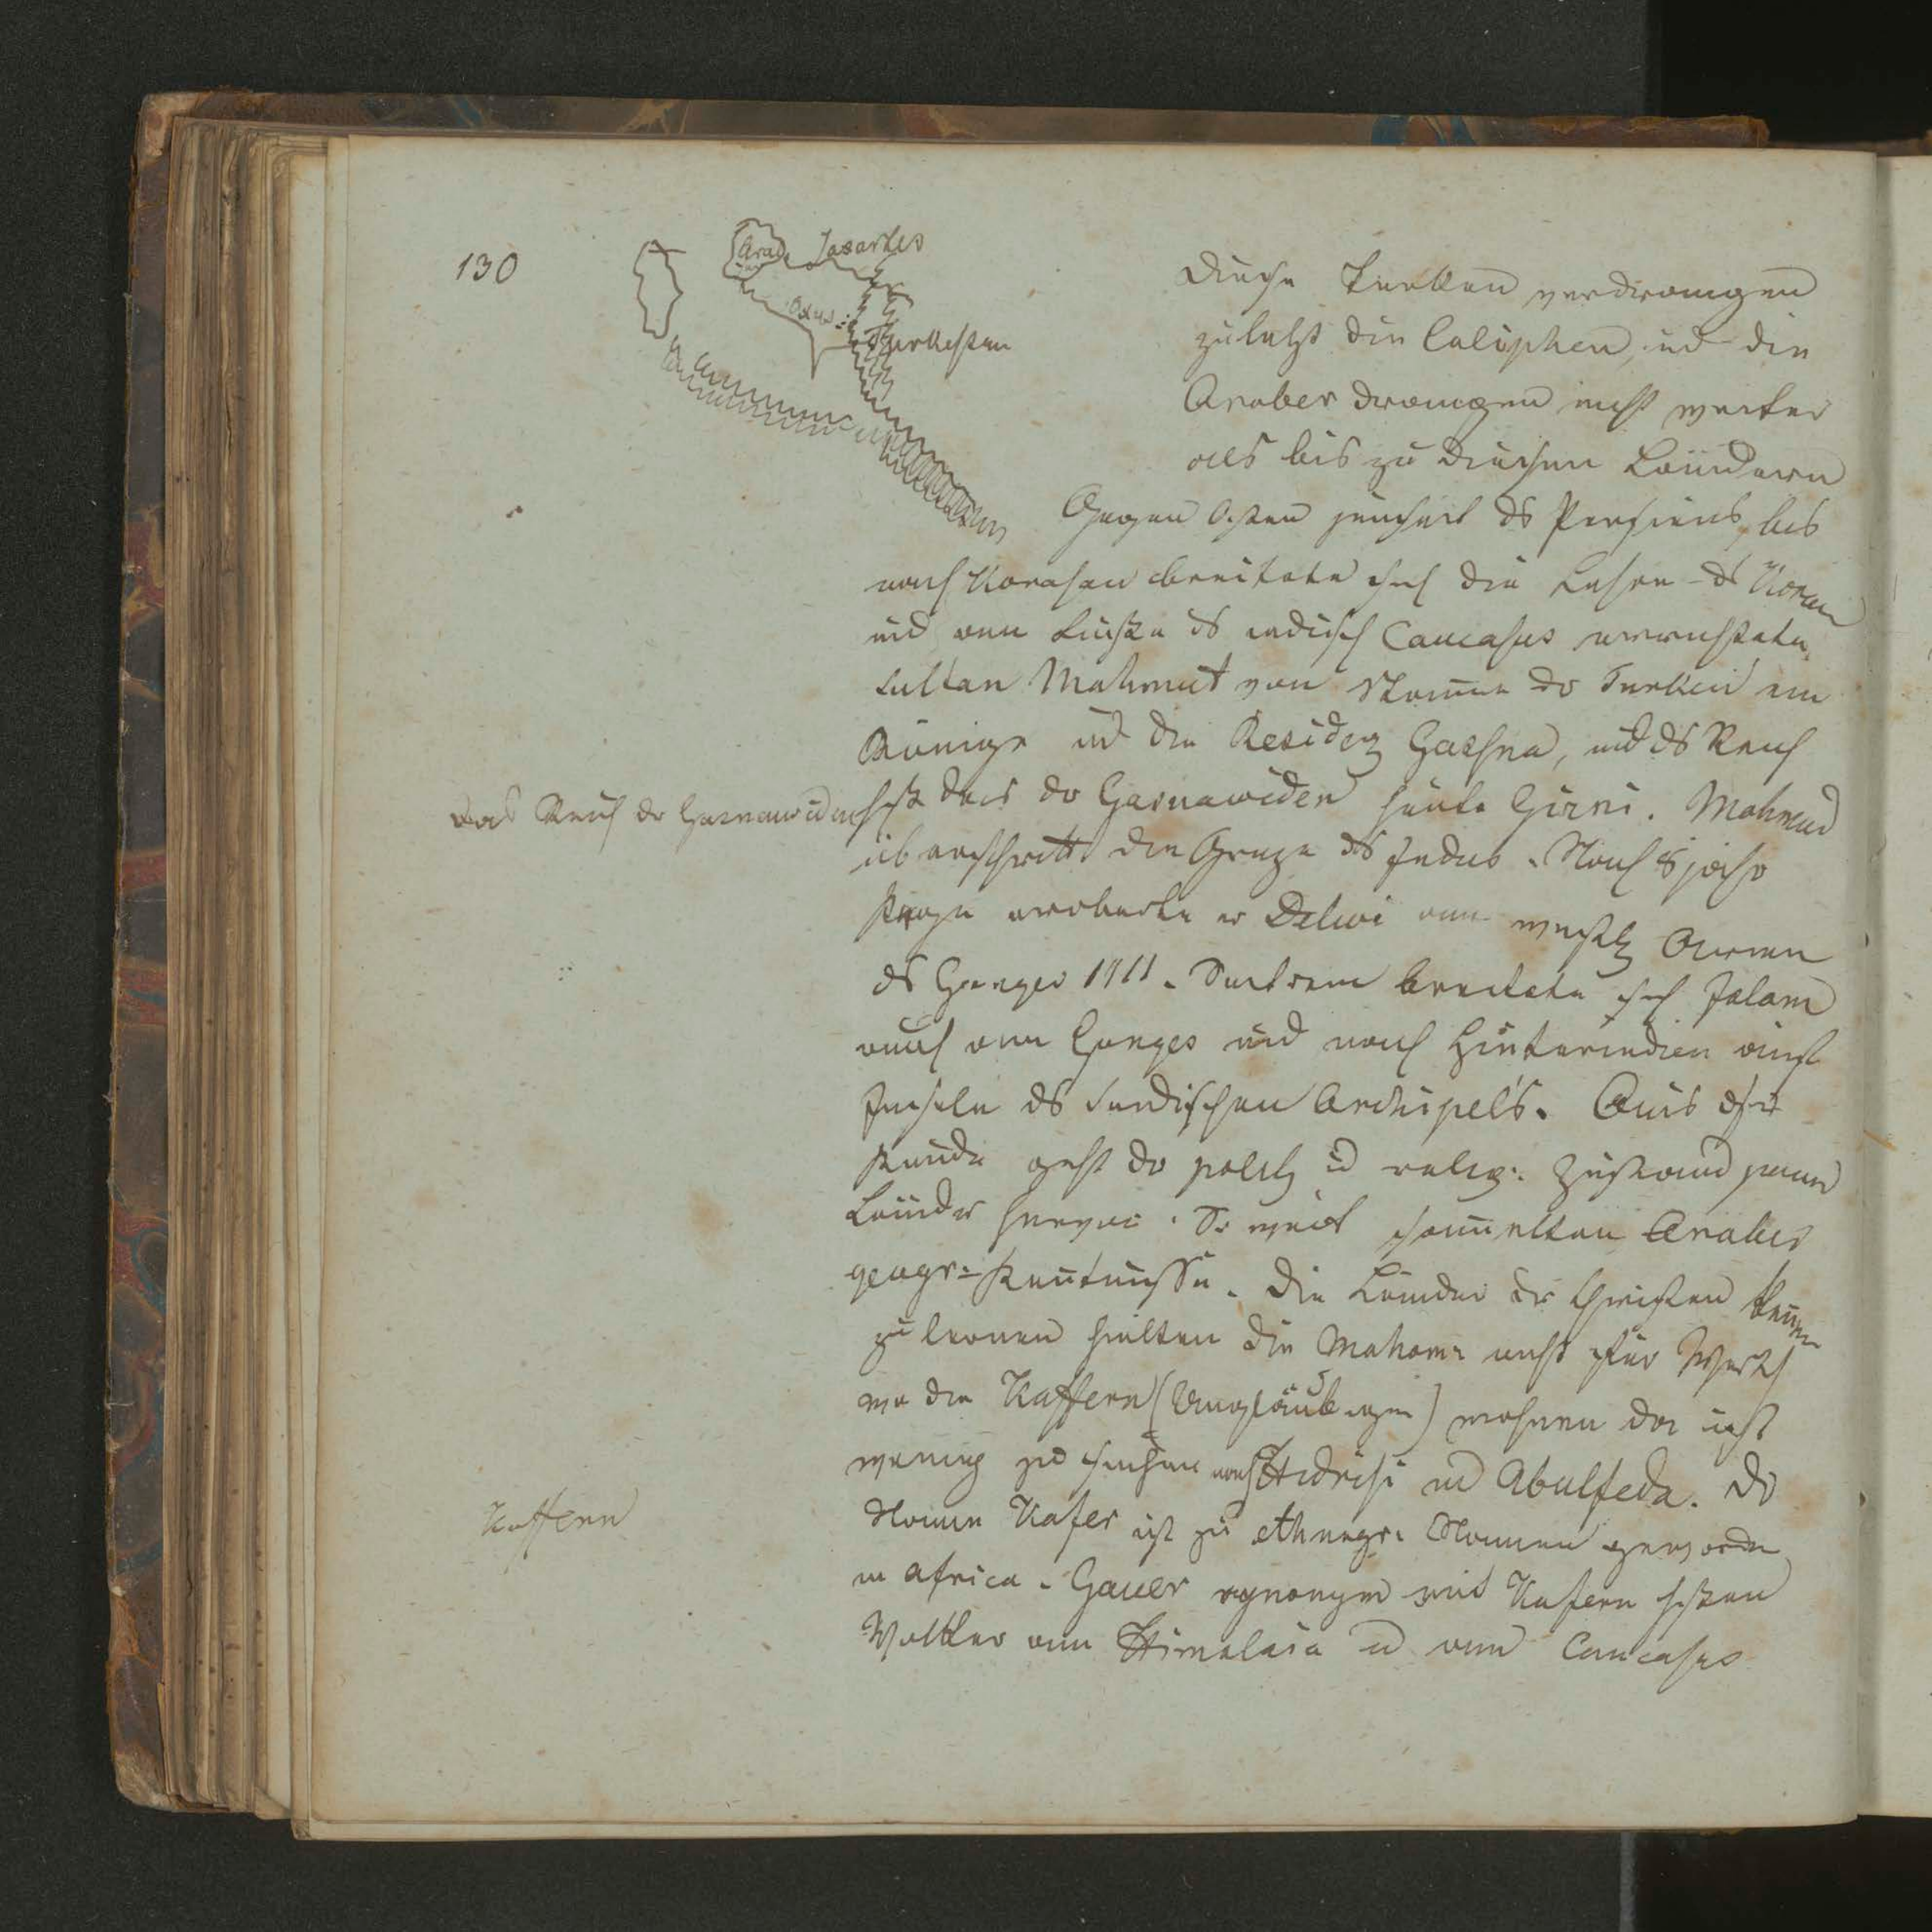 130
Aral
Jaxartes
Oxus
Turkestan
Diese Turken verdrangen
zuletzt die Caliphen, ud die
Araber drangen nicht weiter
als bis zu diesen Ländern
Gegen Osten jenseit ds Persiens, bis
nach Korasan breitete sich die Lehre ds Koran
und am Fuße ds indisch Caucasus errichtete
Sultan Mahmut von Stamme der Turken ein
Könige ud die Residenz Gasna, und ds Reich
Das Reich der Gasnawiden
hßt das der Gasnawiden heute Girni. Mahmud
überschritt die Grenze ds Indus. Nach 8 jähr
Kriege eroberte er Delwi am westl Armen
ds Ganges 1011. Seitdem breitete sich Islam
auch am Ganges und nach Hinterindien auf
Inseln ds Indischen Archipels. Aus
Kunde geht der polit ud relig: Zustand jener
Länder hervor. So weit sammelten Araber
geogr: Kentnisse. Die Länder der Christen kennen
zu lernen hielten die Maham: nicht für Werth
wo die Kaffern (Ungläubigen) wohnen da ist
wenig zu suchen nach Edrisi ud Abulfeda. Der
Kaffern
Namen Kafer ist zu ethnogr: Namen geworden
in Africa. Gauer synonym mit Kafern hßen
Volkler am Himalaia ud am Caucasus